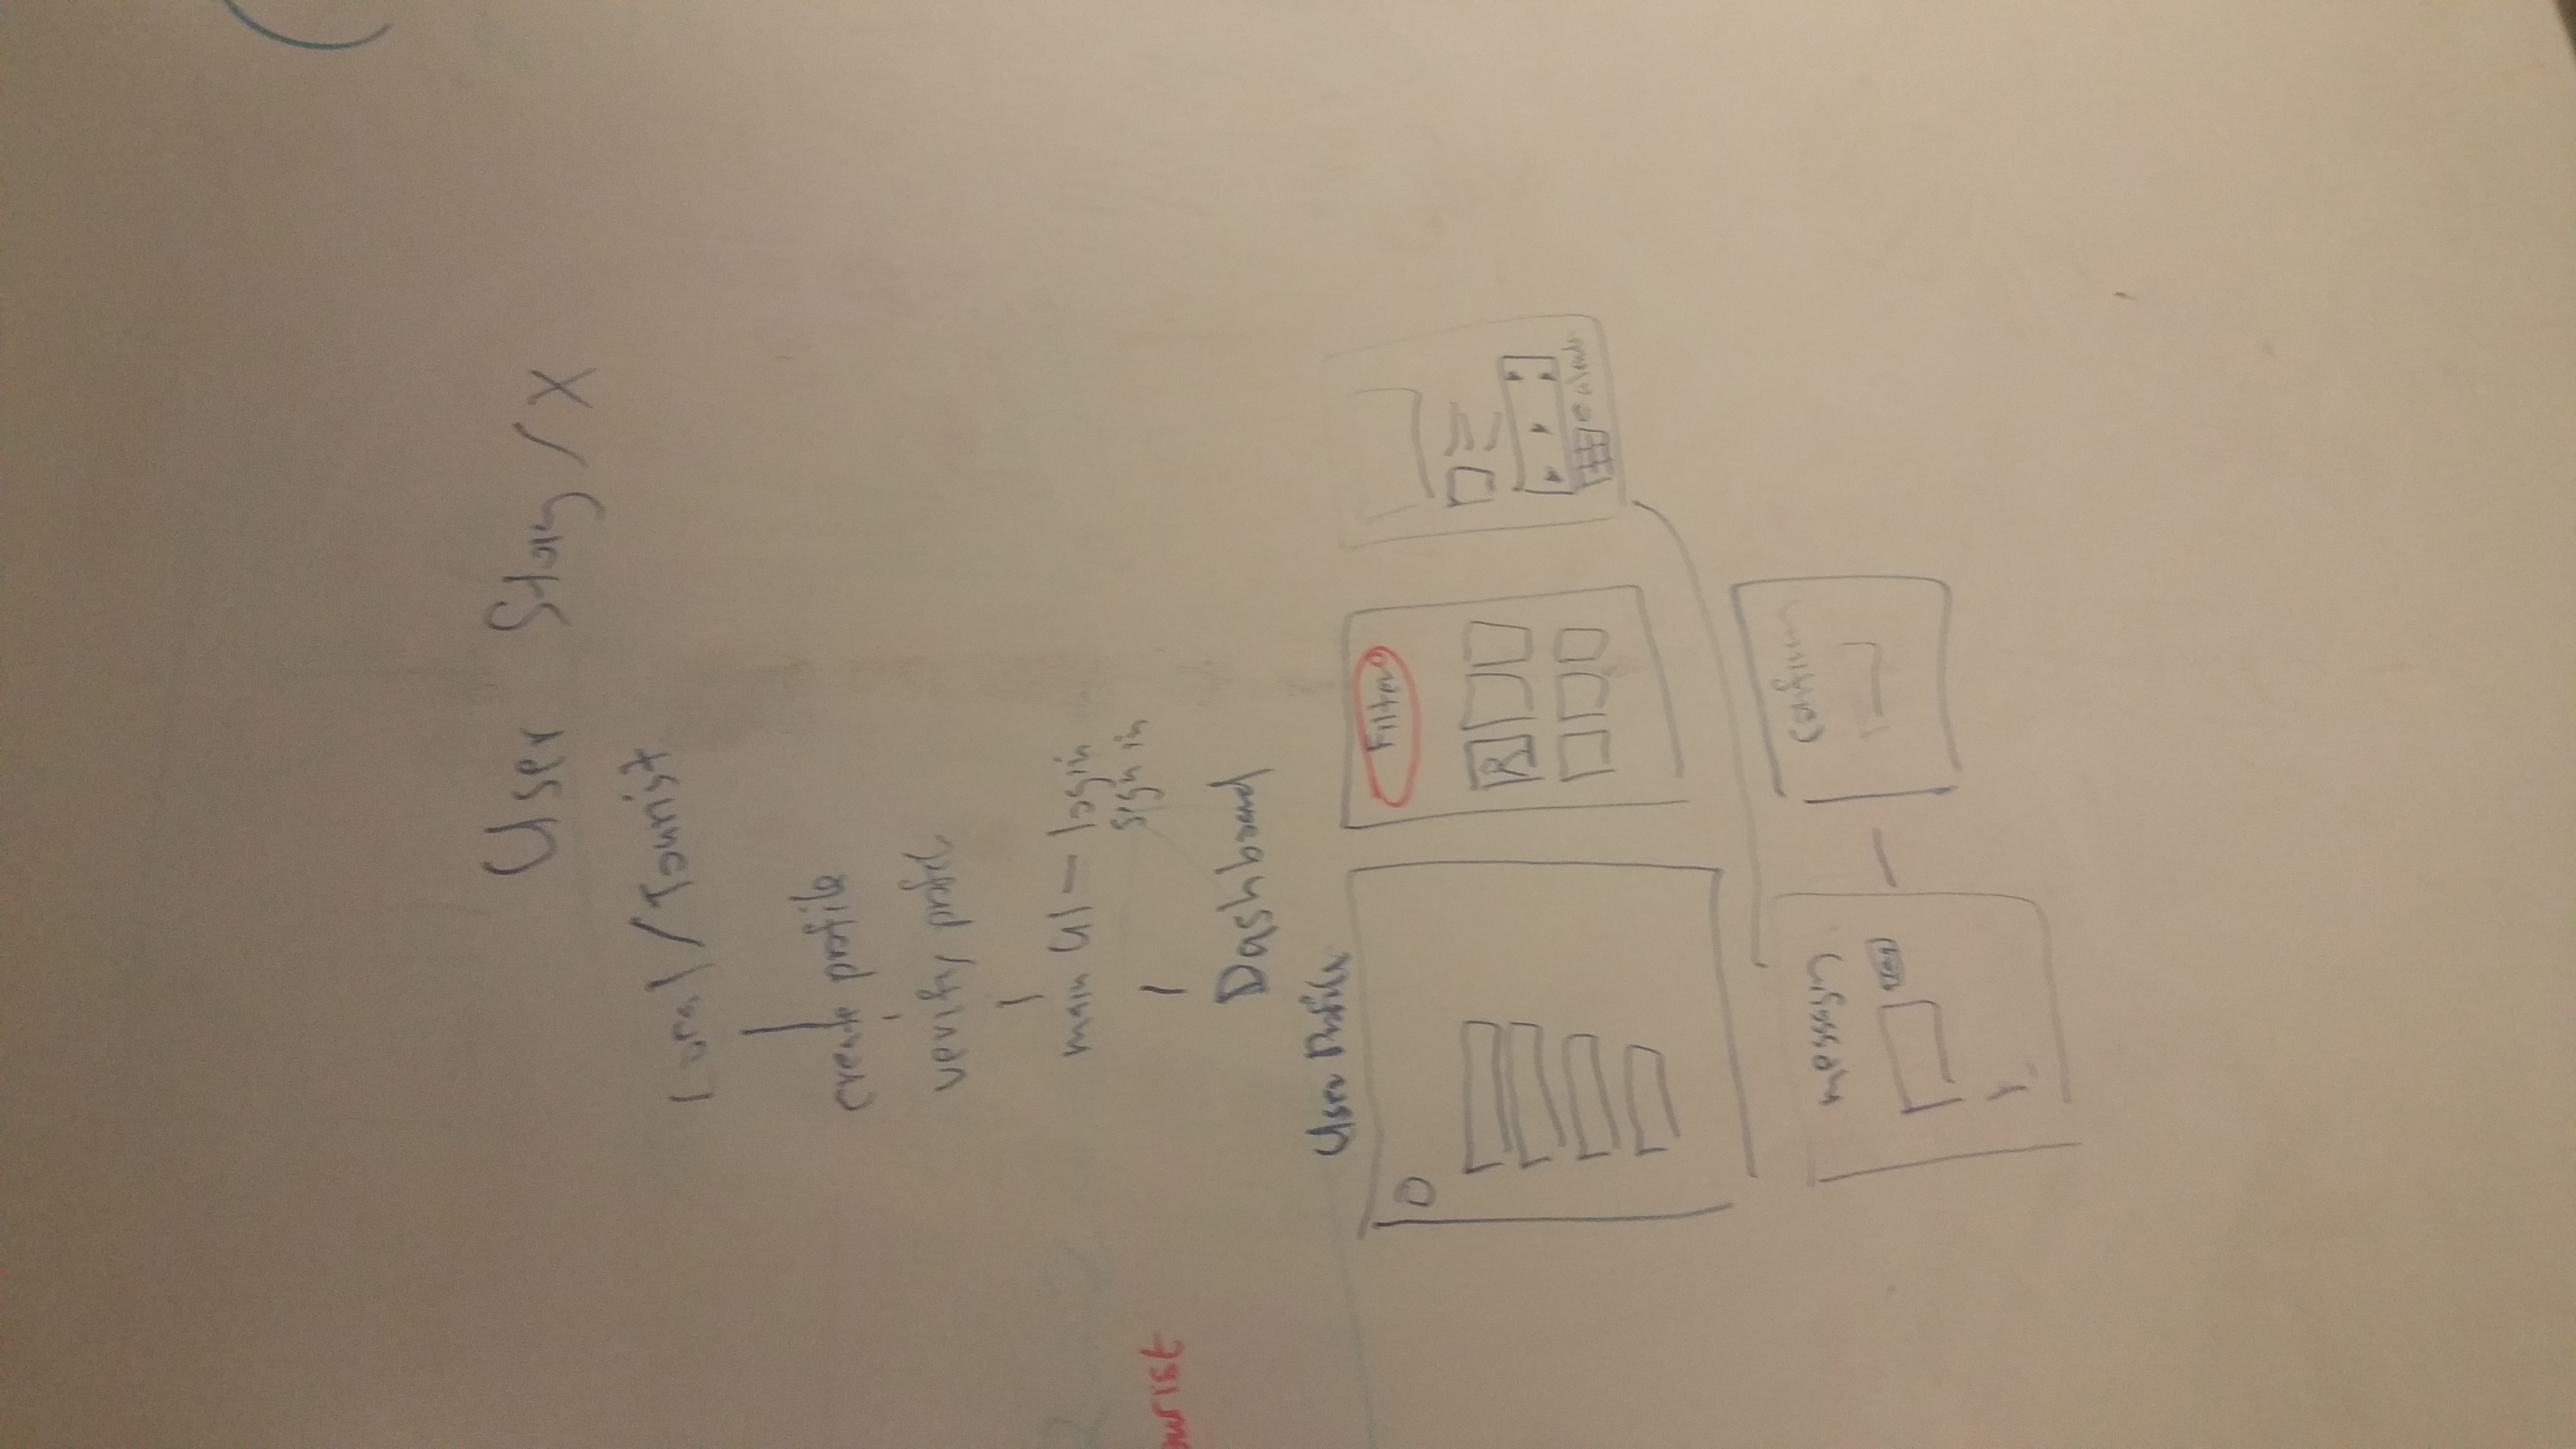 User Story / X
Local / Tourist
create profile
verify profile
main UI — login
sign in
ourist
Dashboard
User Profile
Filter
Calendar
messaging
confirm